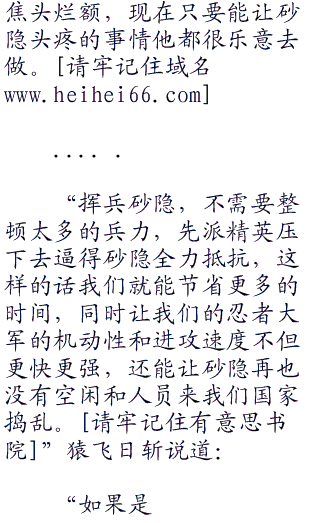 焦头烂额，现在只要能让砂
隐头疼的事情他都很乐意去
做。[请牢记住域名
www.heihei66.com]
.....  .
“挥兵砂隐，不需要整
顿太多的兵力，先派精英压
下去逼得砂隐全力抵抗，这
样的话我们就能节省更多的
时间，同时让我们的忍者大
军的机动性和进攻速度不但
更快更强，还能让砂隐再也
没有空闲和人员来我们国家
捣乱。[请牢记住有意思书
院]”猿飞日斩说道：
“如果是